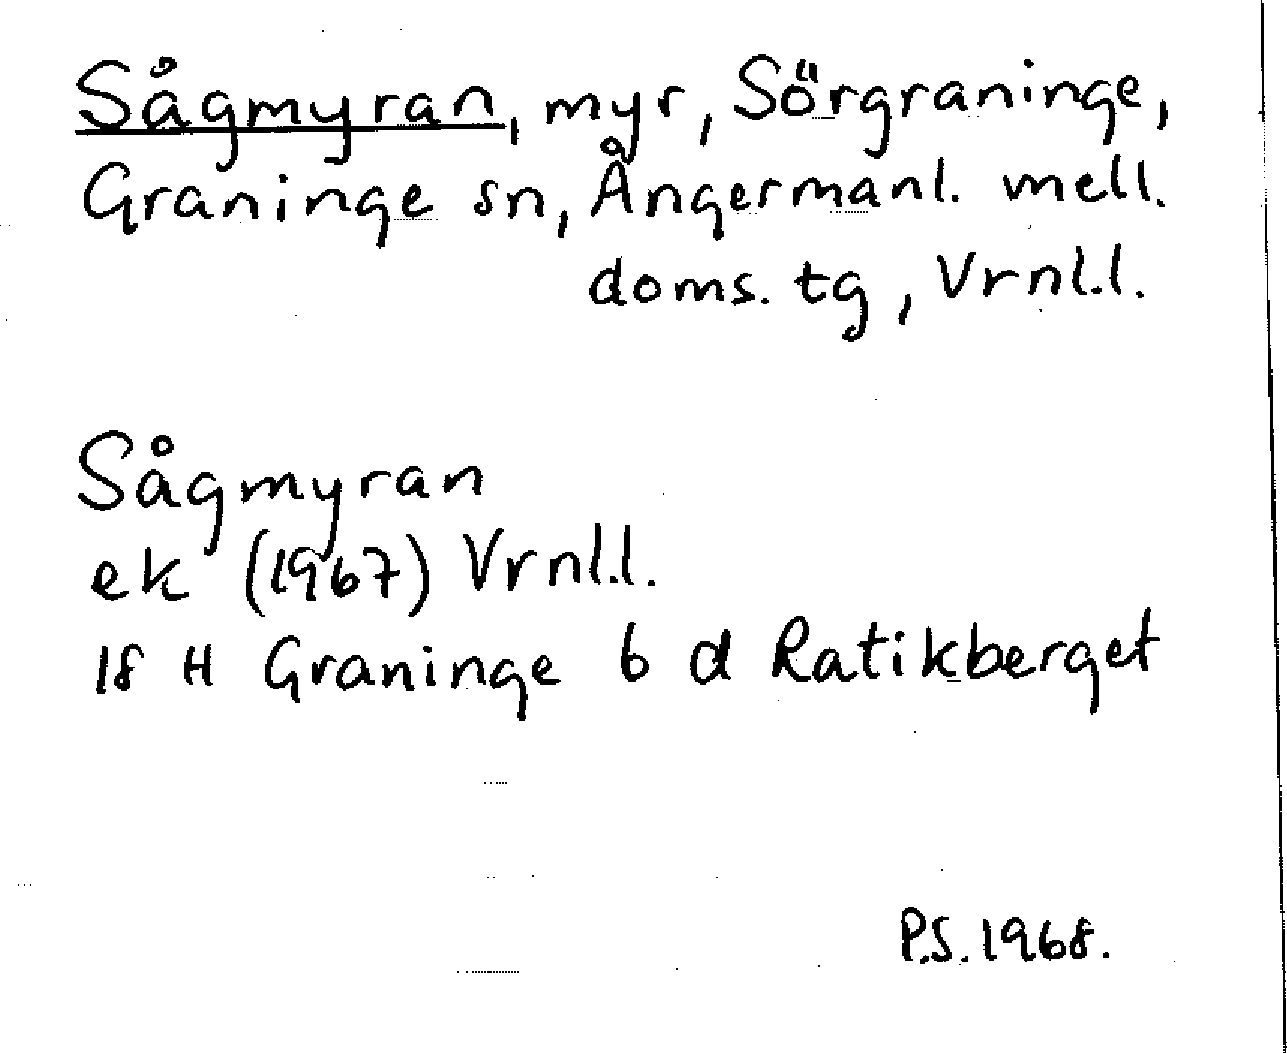 Sågmyran, myr, Sörgraninge,
Graninge sn, Ångermanl. mell.
doms. tg, Vrnl.l.
Sågmyran
ek (1967) Vrnl.l.
18 H Graninge 6 d Ratikberget
P.S. 1968.